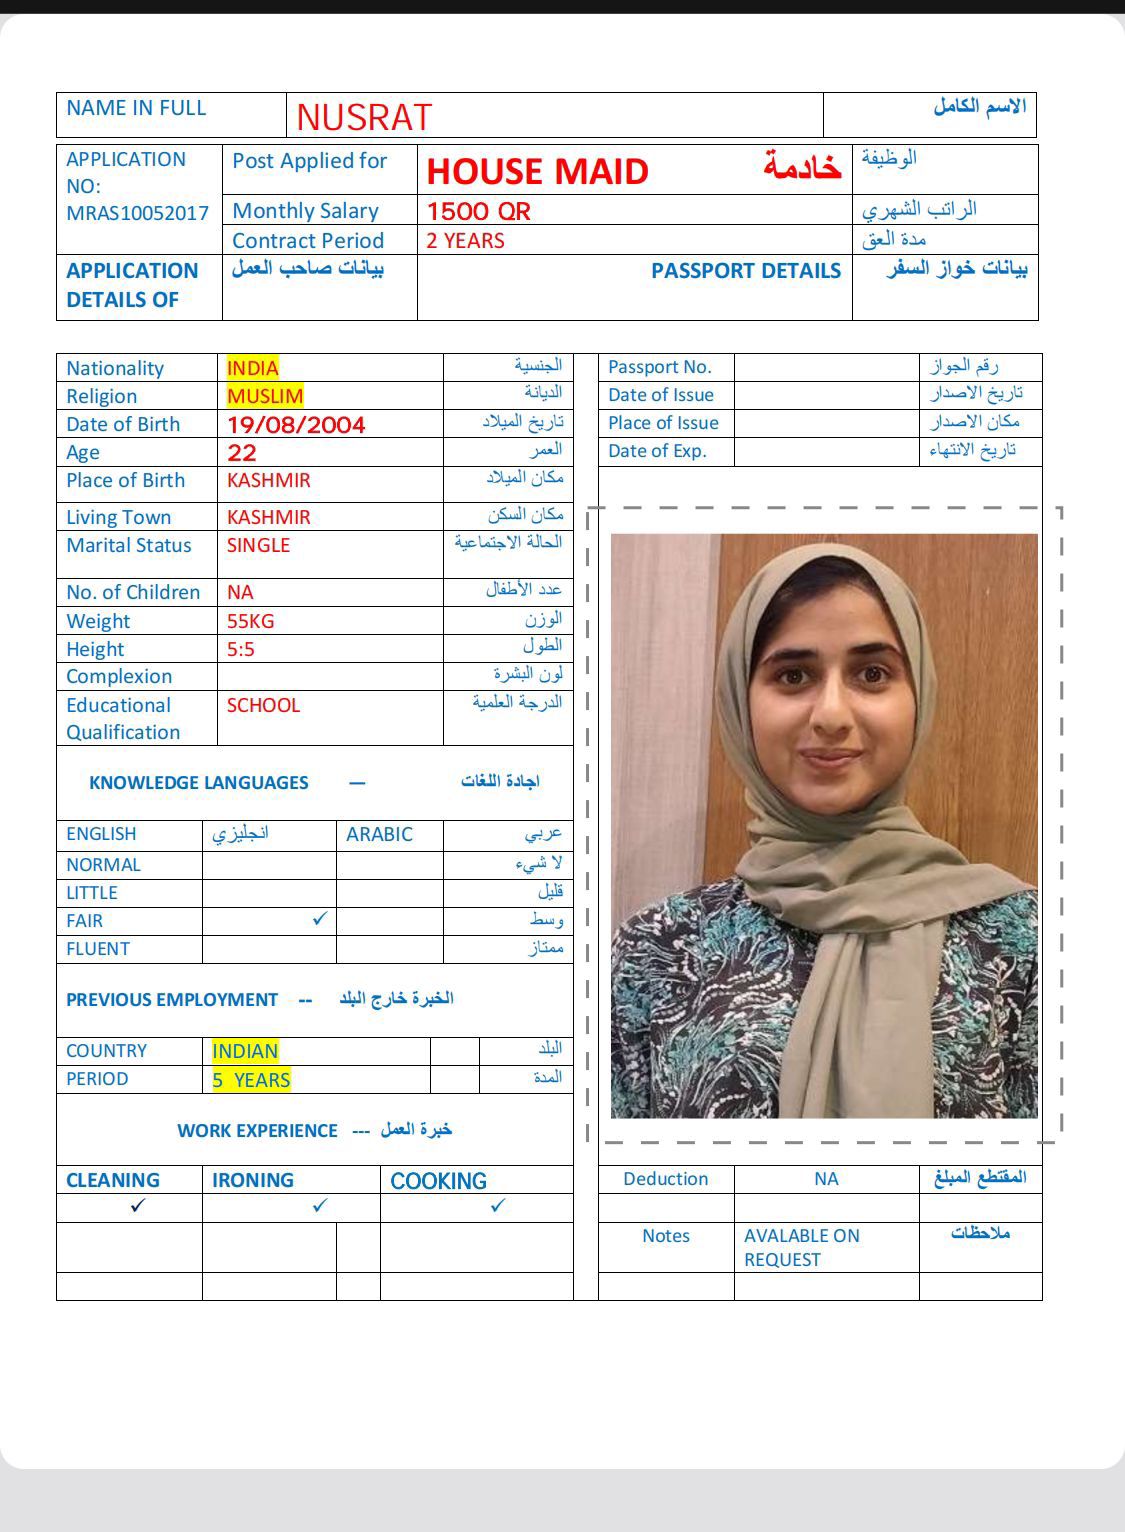 NAME IN FULL NUSRAT الاسم الكامل
APPLICATION NO: MRAS10052017
Post Applied for HOUSE MAID خادمة الوظيفة
Monthly Salary 1500 QR الراتب الشهري
Contract Period 2 YEARS مدة العق
APPLICATION DETAILS OF بيانات صاحب العمل PASSPORT DETAILS بيانات خواز السفر
Nationality INDIA الجنسية
Religion MUSLIM الديانة
Date of Birth 19/08/2004 تاريخ الميلاد
Age 22 العمر
Place of Birth KASHMIR مكان الميلاد
Living Town KASHMIR مكان السكن
Marital Status SINGLE الحالة الاجتماعية
No. of Children NA عدد الأطفال
Weight 55KG الوزن
Height 5:5 الطول
Complexion لون البشرة
Educational Qualification SCHOOL الدرجة العلمية
KNOWLEDGE LANGUAGES — اجادة اللغات
ENGLISH انجليزي ARABIC عربي
NORMAL لا شيء
LITTLE قليل
FAIR ✓ وسط
FLUENT ممتاز
PREVIOUS EMPLOYMENT -- الخبرة خارج البلد
COUNTRY INDIAN البلد
PERIOD 5 YEARS المدة
WORK EXPERIENCE --- خبرة العمل
CLEANING IRONING COOKING
✓ ✓ ✓
Passport No. رقم الجواز
Date of Issue تاريخ الاصدار
Place of Issue مكان الاصدار
Date of Exp. تاريخ الانتهاء
Deduction NA المقتطع المبلغ
Notes AVALABLE ON REQUEST ملاحظات